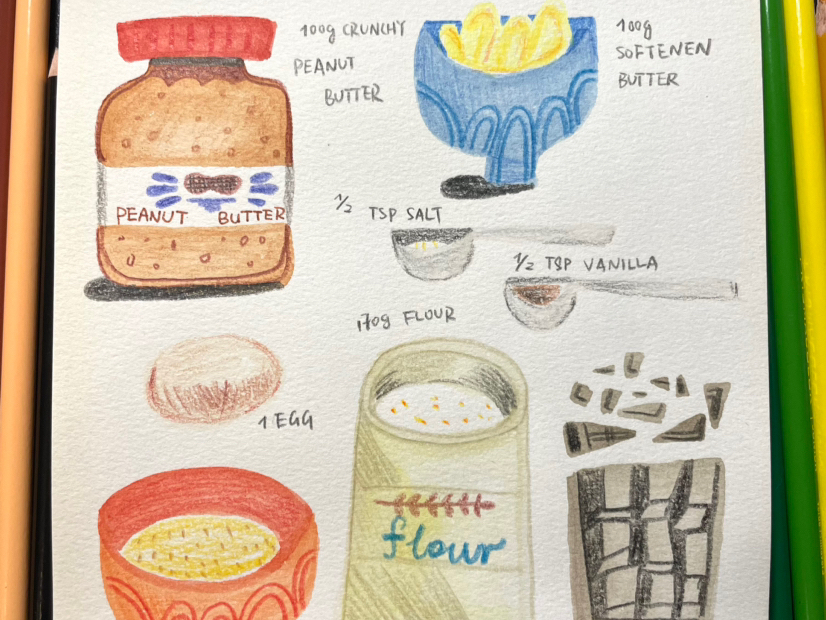 100g CRUNCHY
PEANUT
BUTTER
100g
SOFTENEN
BUTTER
PEANUT BUTTER
1/2 TSP SALT
1/2 TSP VANILLA
170g FLOUR
1 EGG
flour